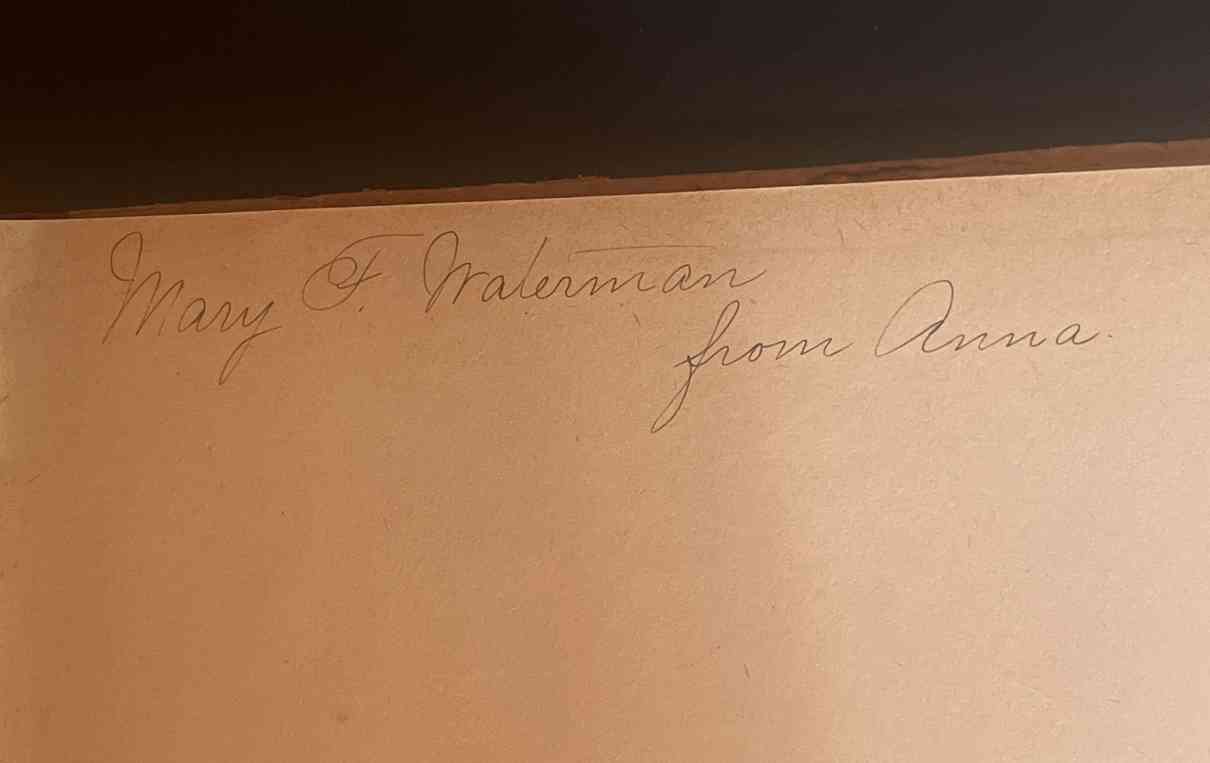 Mary F. Waterman
from Anna.